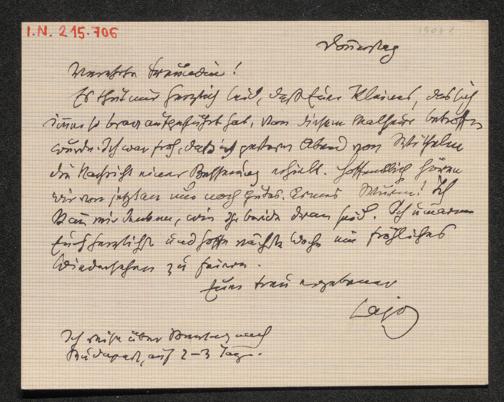 I.N. 215.706
Donnerstag
Verehrte Freundin!
Es thut mir herzlich leid, daß Euer Kleines, das sich
immer so brav aufgeführt hat, von diesem Malheur betroffen
wurde. Ich war froh, daß ich gestern Abend von Wilhelm
die Nachricht einer Besserung erhielt. Hoffentlich hören
wir von jetzt an nur noch Gutes. Armes Ich
kann mir denken, wie Ihr beide dran seid. Ich umarme
Euch herzlichst und hoffe nächste Woche ein fröhliches
Wiedersehen zu feiern.
Euer treu ergebener
Lajos
Ich reise über Sonntag nach
Budapest, auf 2–3 Tage.